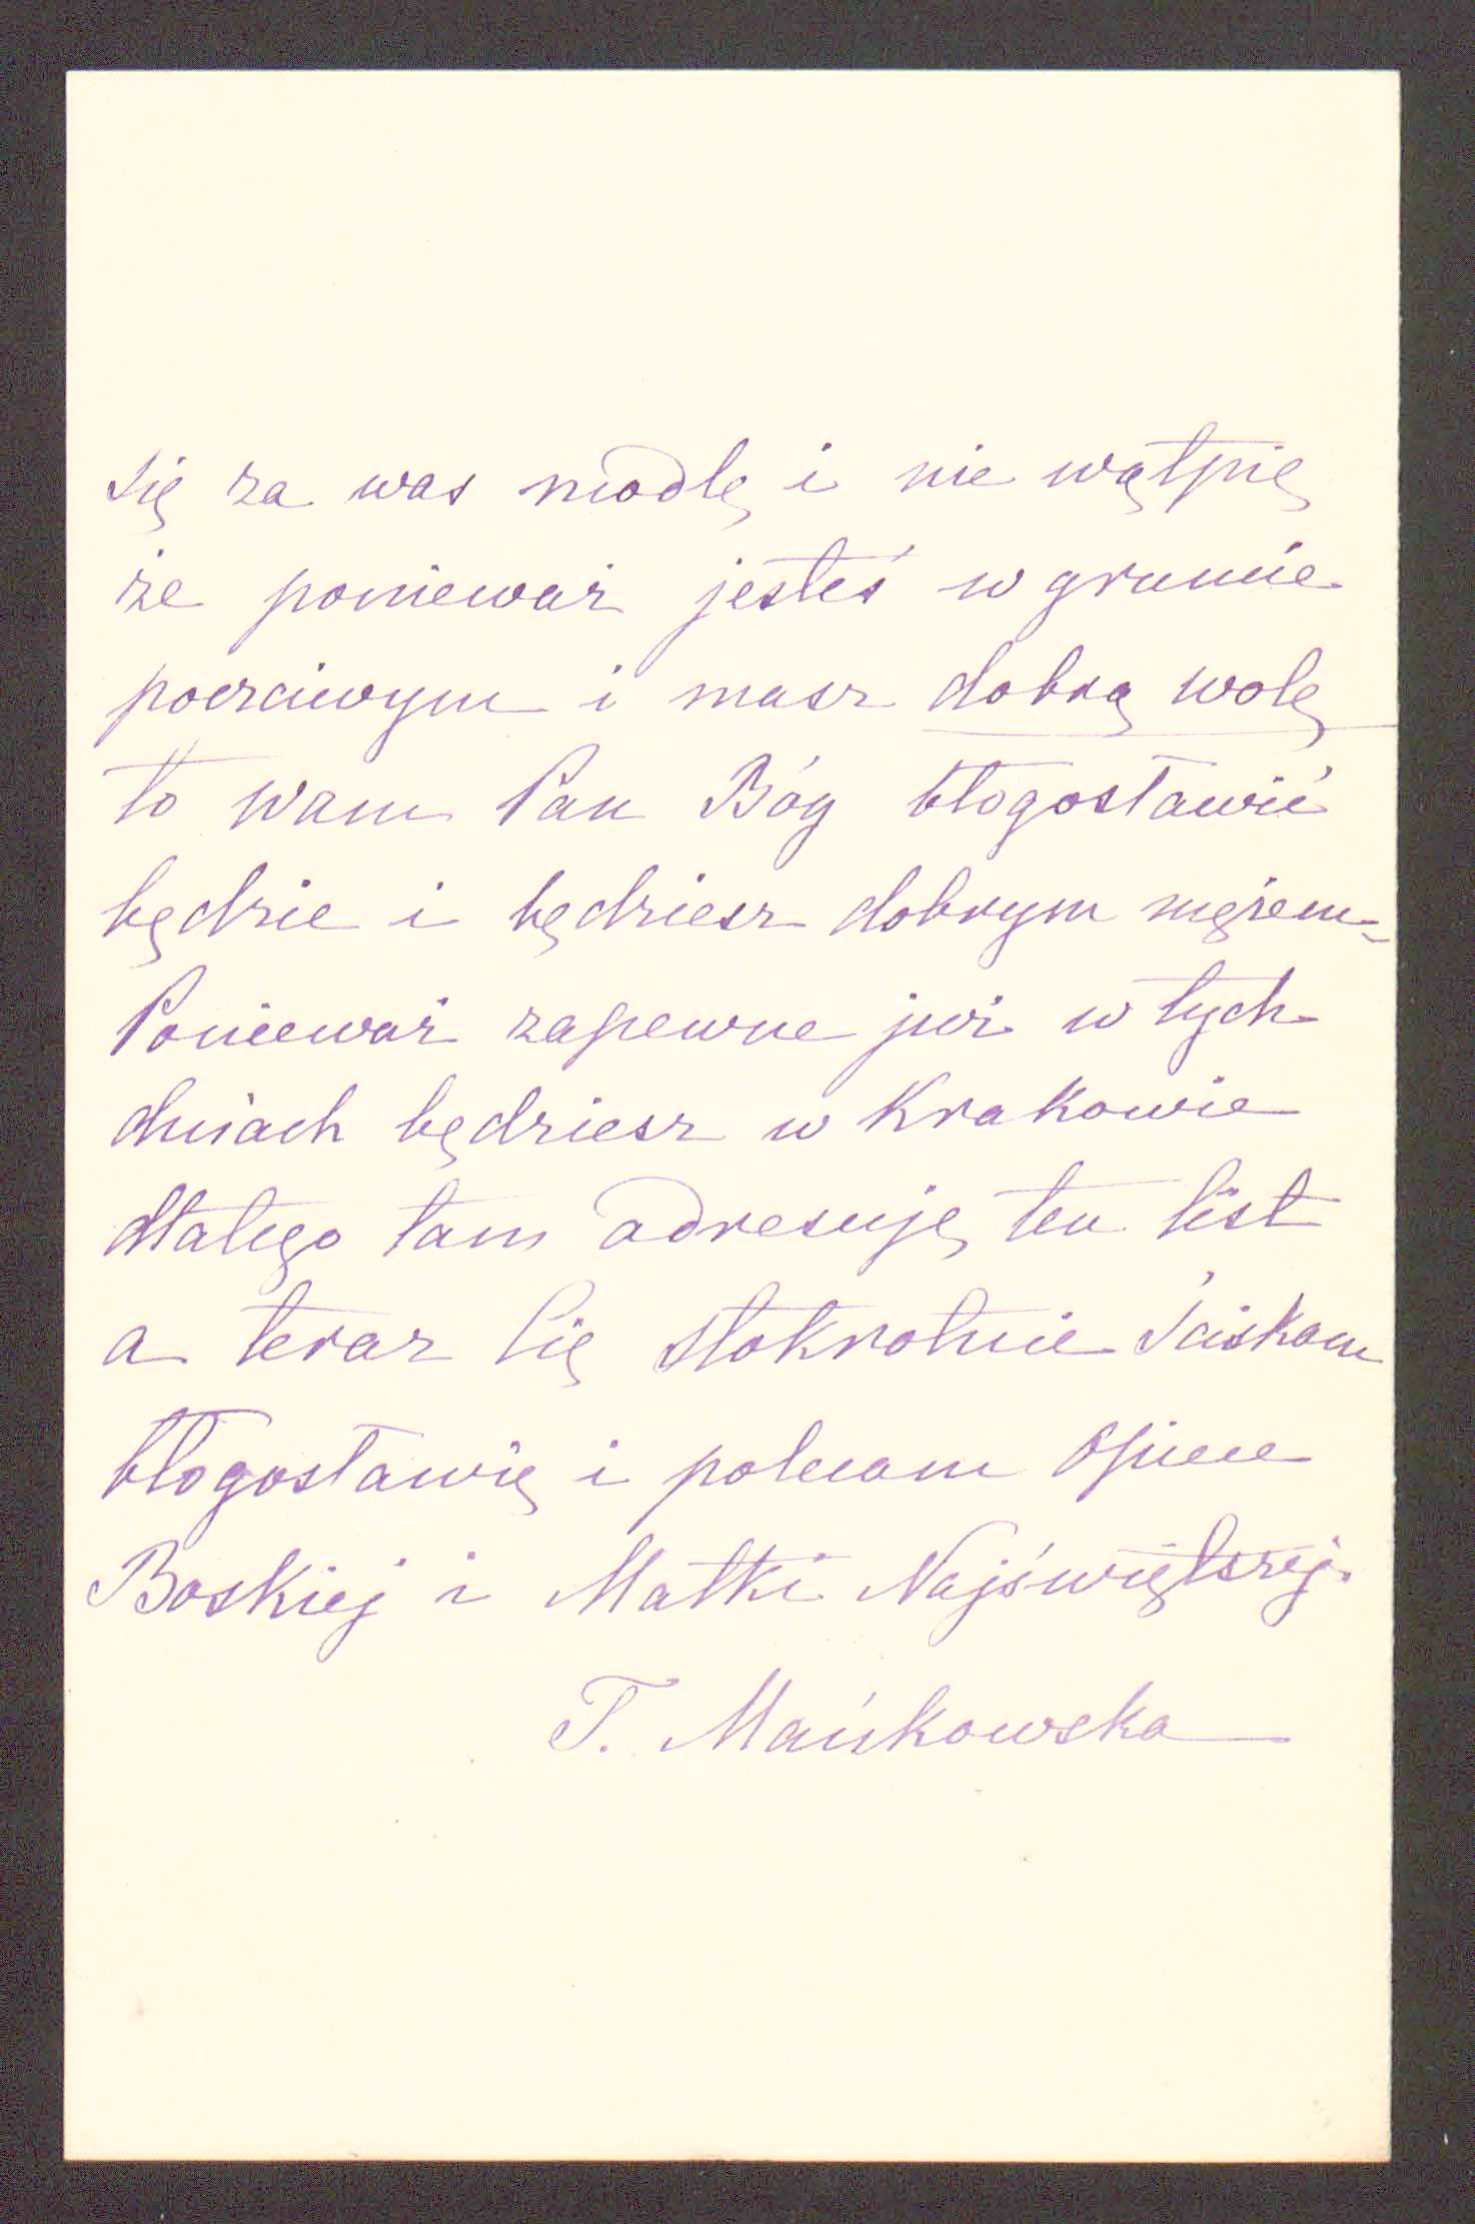 się za was modlę i nie wątpię
że ponieważ jesteś w gruncie
poczciwym i masz dobrą wolę
to wam Pan Bóg błogosławić
będzie i będziesz dobrym mężem
Ponieważ zapewne już w tych
dniach będziesz w Krakowie
dlatego tam adresuję ten list
a teraz Cię stokrotnie ściskam
błogosławię i polecam Opiece
Boskiej i Matki Najświętszej.
T. Mańkowska